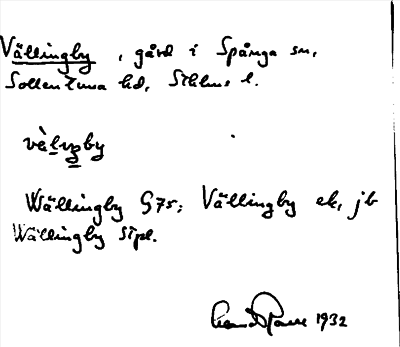 Vällingby, gård i Spånga sn,
Sollentuna hd, Sthlms l.
vä̀lŋby
Wällingby G75; Vällingby ek, jb
Wällingby stpl.
1932